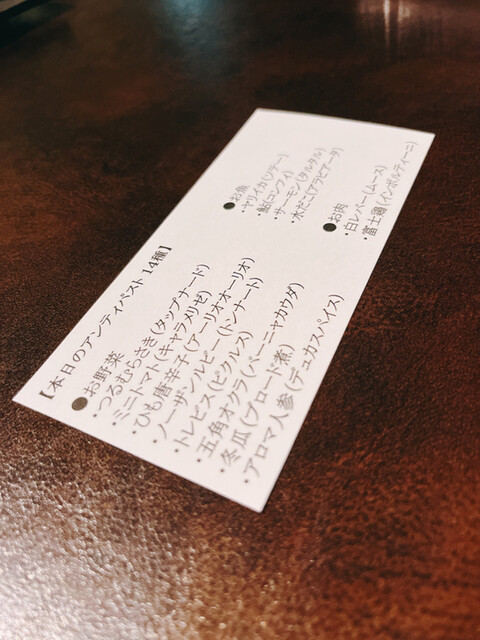 【本日のアンティパスト 14種】
●お野菜
・つるむらさき(タップナード)
・ミニトマト(キャラメリゼ)
・ひも唐辛子(アーリオオーリオ)
・ノーザンルビー(トンナート)
・トレビス(ピクルス)
・五角オクラ(バーニャカウダ)
・冬瓜(ブロード煮)
・アロマ人参(デュカスパイス)
●お魚
・ヤリイカ(ソテー)
・鮎(コンフィ)
・サーモン(タルタル)
・水だこ(アラビアータ)
●お肉
・白レバー(ムース)
・富士鶏(インボルティーニ)